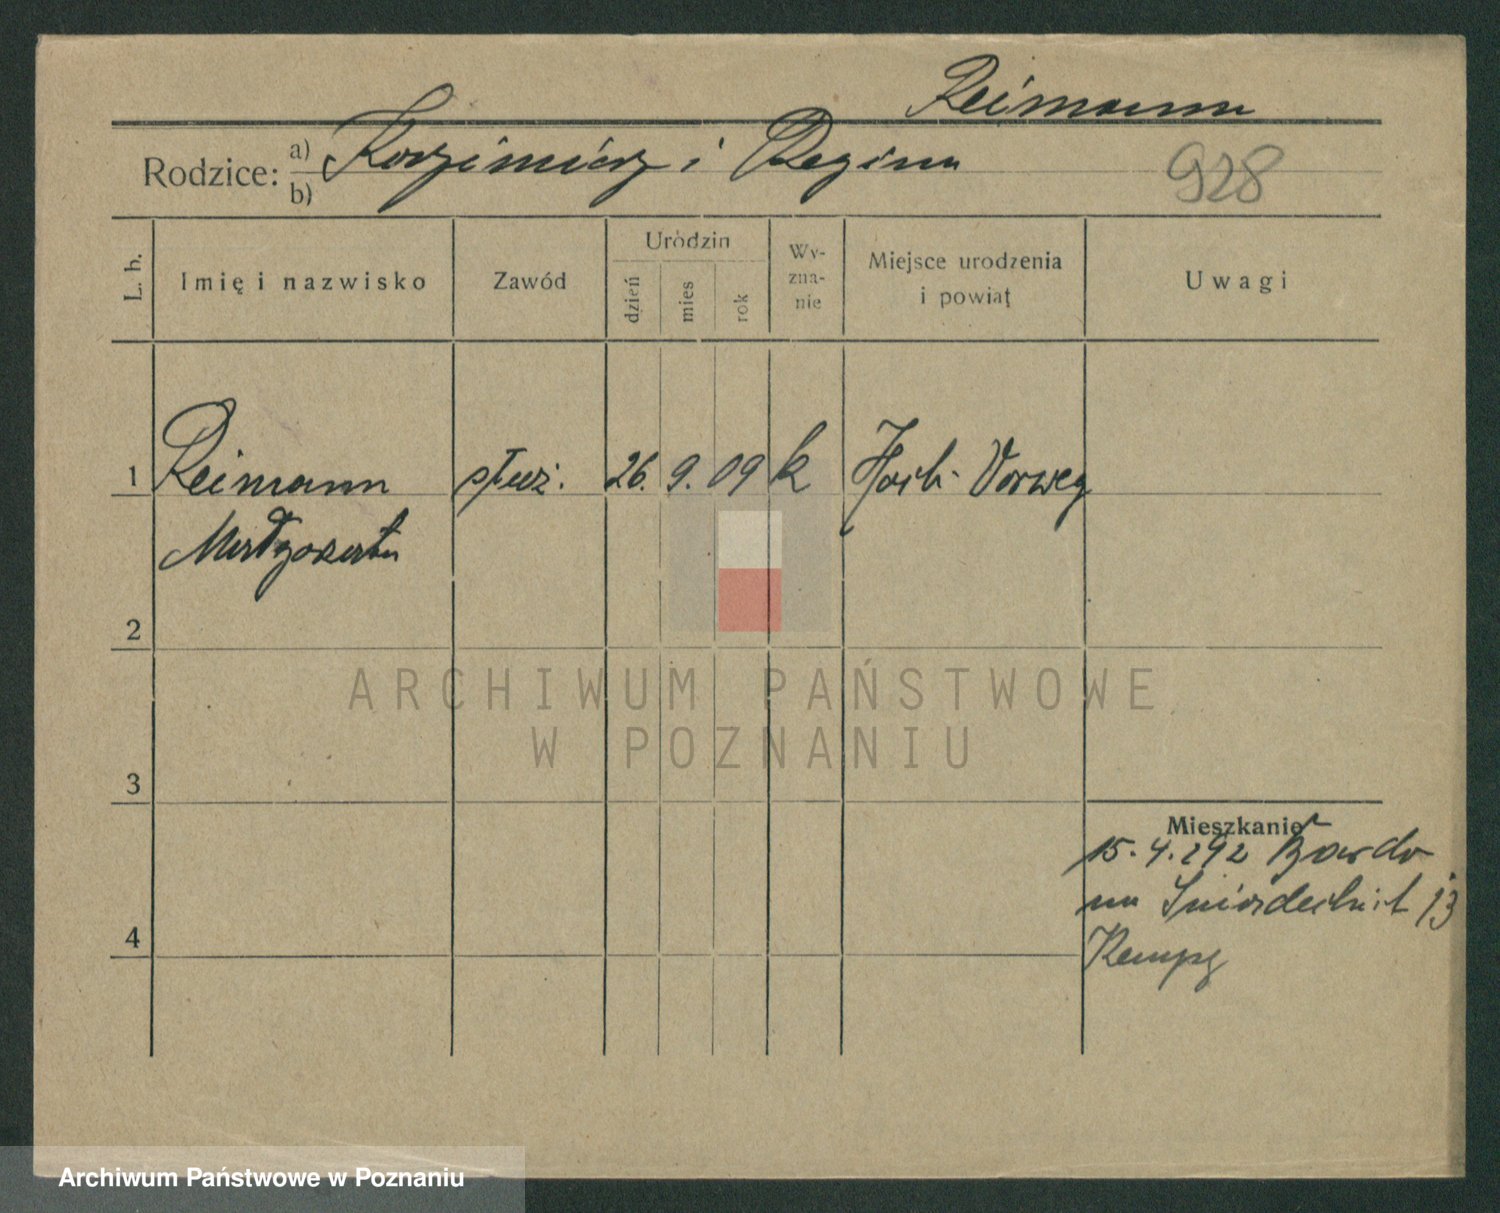 Reimann
Rodzice: a) Kazimierz i Regina
b)
928
L. b. Imię i nazwisko Zawód Urodzin dzień mies rok Wyzna-nie Miejsce urodzenia i powiat Uwagi
1 Reimann służ. 26. 9. 09 k Vorweg
Małgorzata
2
3
4
Mieszkanie
15.4.292
13
ARCHIWUM PAŃSTWOWE
W POZNANIU
Archiwum Państwowe w Poznaniu